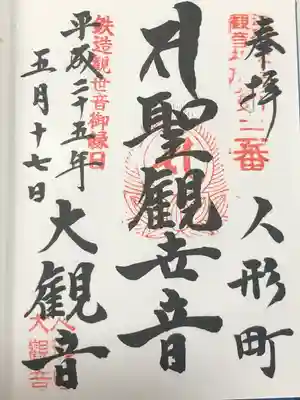 奉拝
人形町
聖観世音
大観音
平成二十五年
五月十七日
鉄造観世音御縁日
三番
大観音